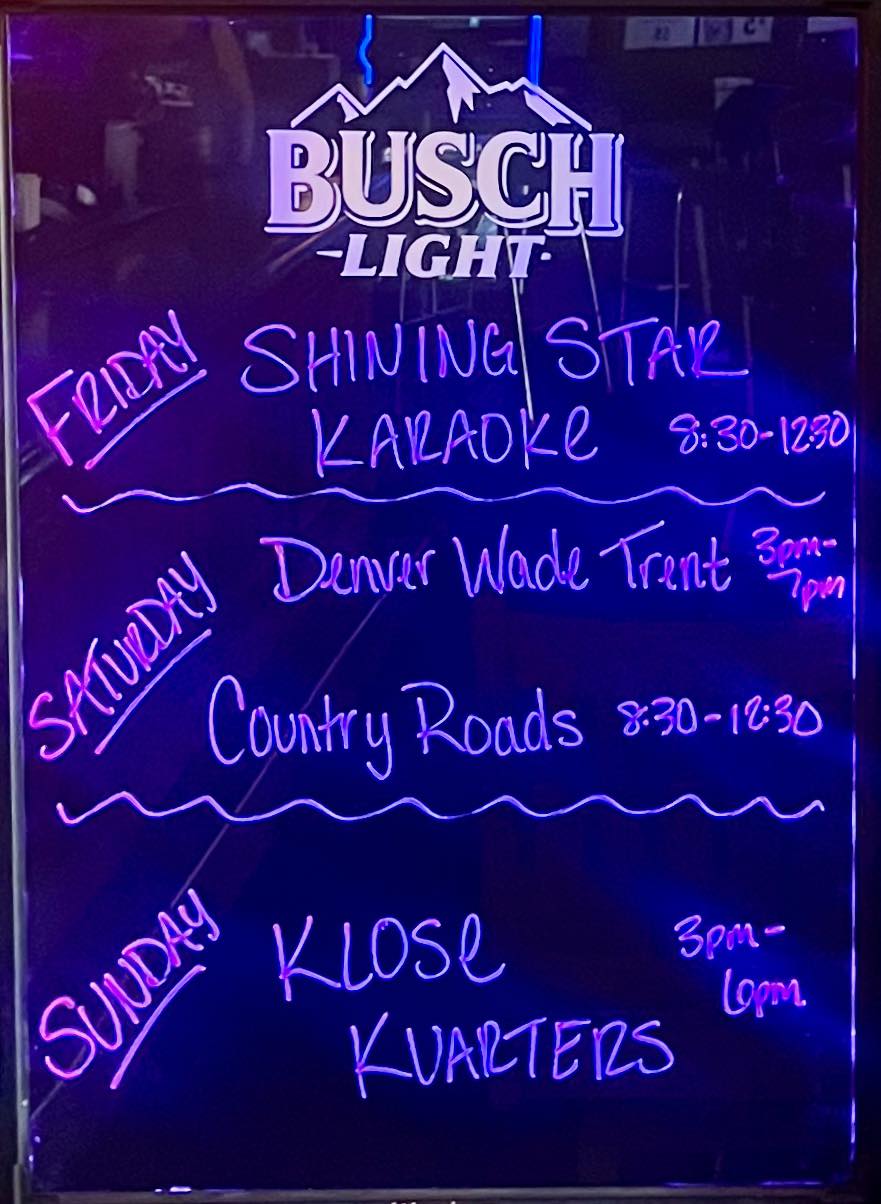 BUSCH
-LIGHT-
FRIDAY
SHINING STAR
KARAOKe 8:30-12:30
SATURDAY
Denver Wade Trent 3pm-
7pm
Country Roads 8:30-12:30
SUNDAY
KLOSe 3pm-
6pm
KUARTERS